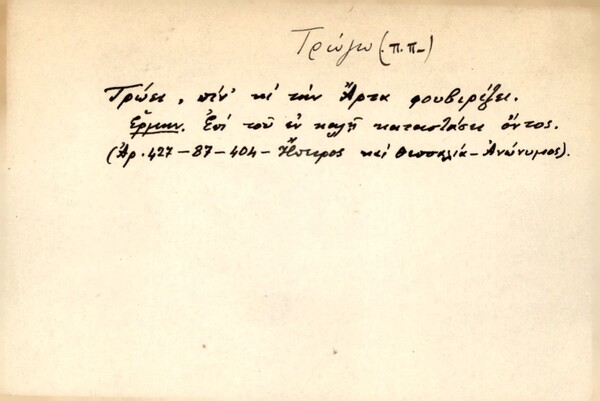 Τρώγω (π.π.)
Τρώει, πίν' κί τήν Ἄρτα φουβιρίζει.
Ἑρμην. Ἐπί τοῦ ἐν καλῇ καταστάσει ὄντος.
(Ἀρ. 427-87-404-Ἤπειρος καί Θεσσαλία-Ἀνώνυμος).